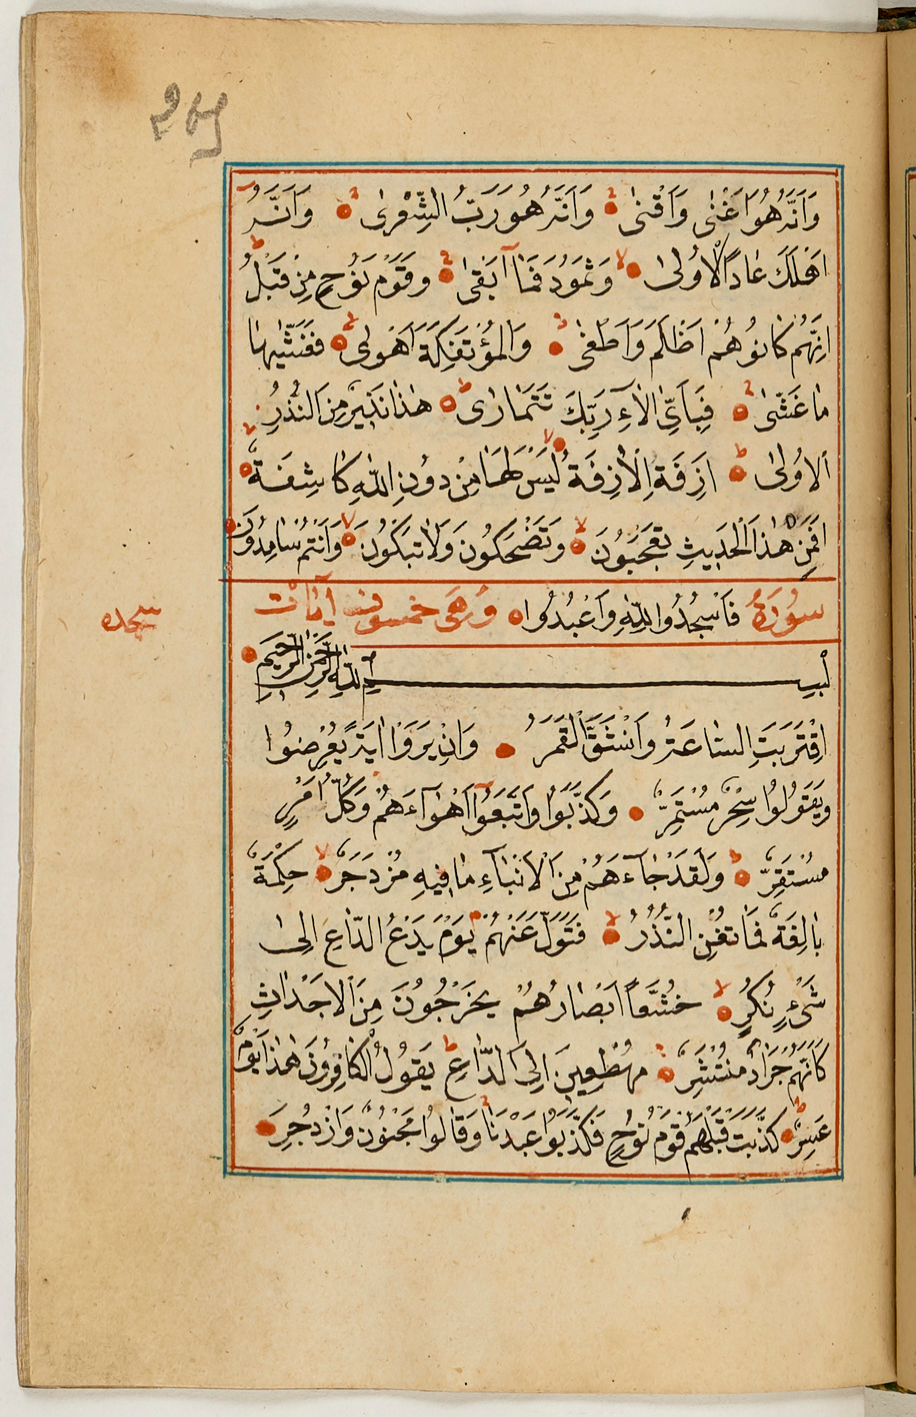 وَاَنَّهُ هُوَ اَغْنٰى وَاَقْنٰى وَاَنَّهُ هُوَ رَبُّ الشِّعْرٰى وَاَنَّهُ
اَهْلَكَ عَادًا اْلاُولٰى وَثَمُودَ فَمَآ اَبْقٰى وَقَوْمَ نُوحٍ مِنْ قَبْلُ
اِنَّهُمْ كَانُوا هُمْ اَظْلَمَ وَاَطْغٰى وَالْمُؤْتَفِكَةَ اَهْوٰى فَغَشّٰيهَا
مَا غَشّٰى فَبِاَيِّ اٰلآءِ رَبِّكَ تَتَمَارٰى هٰذَا نَذِيرٌ مِنَ النُّذُرِ
اْلاُولٰى اَزِفَةِ اْلاٰزِفَةُ لَيْسَ لَهَا مِنْ دُونِ اللّٰهِ كَاشِفَةٌ
اَفَمِنْ هٰذَا الْحَدِيثِ تَعْجَبُونَ وَتَضْحَكُونَ وَلَا تَبْكُونَ وَاَنْتُمْ سَامِدُونَ
سجده
سُورَةُ فَاسْجُدُوا لِلّٰهِ وَاعْبُدُوا وَهِيَ خمسون اٰيَات
بِسْمِ اللّٰهِ الرَّحْمٰنِ الرَّحِيمِ
اِقْتَرَبَتِ السَّاعَةُ وَانْشَقَّ الْقَمَرُ وَاِنْ يَرَوْا اٰيَةً يُعْرِضُوا
وَيَقُولُوا سِحْرٌ مُسْتَمِرٌّ وَكَذَّبُوا وَاتَّبَعُوٓا اَهْوَآءَهُمْ وَكُلُّ اَمْرٍ
مُسْتَقِرٌّ وَلَقَدْ جَآءَهُمْ مِنَ اْلاَنْبَآءِ مَا فِيهِ مُزْدَجَرٌ حِكْمَةٌ
بَالِغَةٌ فَمَا تُغْنِ النُّذُرُ فَتَوَلَّ عَنْهُمْ يَوْمَ يَدْعُ الدَّاعِ اِلٰى
شَيْءٍ نُكُرٍ خُشَّعًا اَبْصَارُهُمْ يَخْرُجُونَ مِنَ اْلاَجْدَاثِ
كَاَنَّهُمْ جَرَادٌ مُنْتَشِرٌ مُهْطِعِينَ اِلَى الدَّاعِ يَقُولُ الْكَافِرُونَ هٰذَا يَوْمٌ
عَسِرٌ كَذَّبَتْ قَبْلَهُمْ قَوْمُ نُوحٍ فَكَذَّبُوا عَبْدَنَا وَقَالُوا مَجْنُونٌ وَازْدُجِرَ